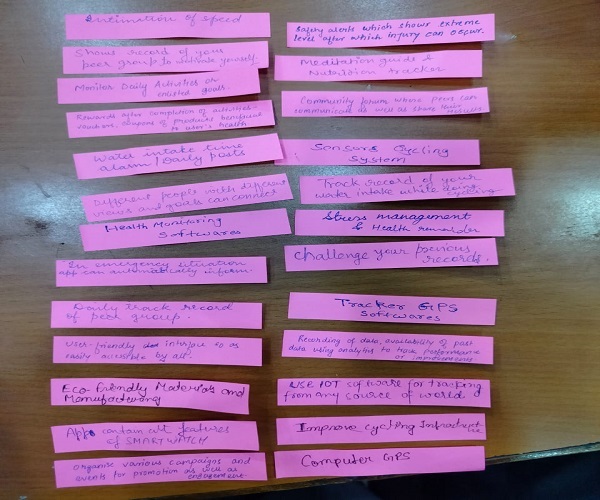 Estimation of speed
Shows record of your
peer group to motivate yourself.
Monitor Daily Activities or
enlisted goals.
Rewards after completion of activities-
vouchers, coupons of products beneficial
to user's health
Water intake time
alarm/Daily posts
Different people with different
views and goals can connect
Health Monitoring
Softwares
In emergency situation
app can automatically inform.
Daily track record
of peer group.
User-friendly interface so as
easily accessible by all.
Eco-friendly Materials and
Manufacturing
App contain all features
of SMARTWATCH
Organise various campaigns and
events for promotion as well as
engagement
Safety alerts which shows extreme
level after which injury can occur.
Meditation guide &
Nutrition tracker
Community forum where peers can
communicate as well as share their
Sensors Cycling
System
Track record of your
water intake while doing
cycling
Stress management
& Health reminder
Challenge your previous
records.
Tracker GPS
Softwares
Recording of data, availability of past
data using analytics to track performance
or improvements
USE IOT software for tracking
from any source of world
Improve cycling Infrastruct-
ure
Computer GPS